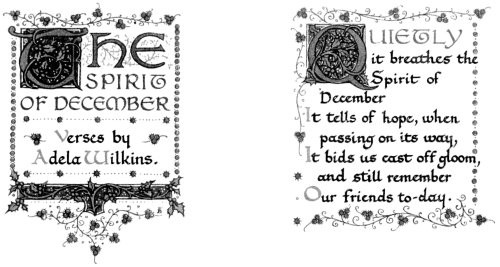 THE
SPIRIT
OF DECEMBER
Verses by
Adela Wilkins.
QUIETLY
it breathes the
Spirit of
December
It tells of hope, when
passing on its way,
It bids us cast off gloom,
and still remember
Our friends to-day.